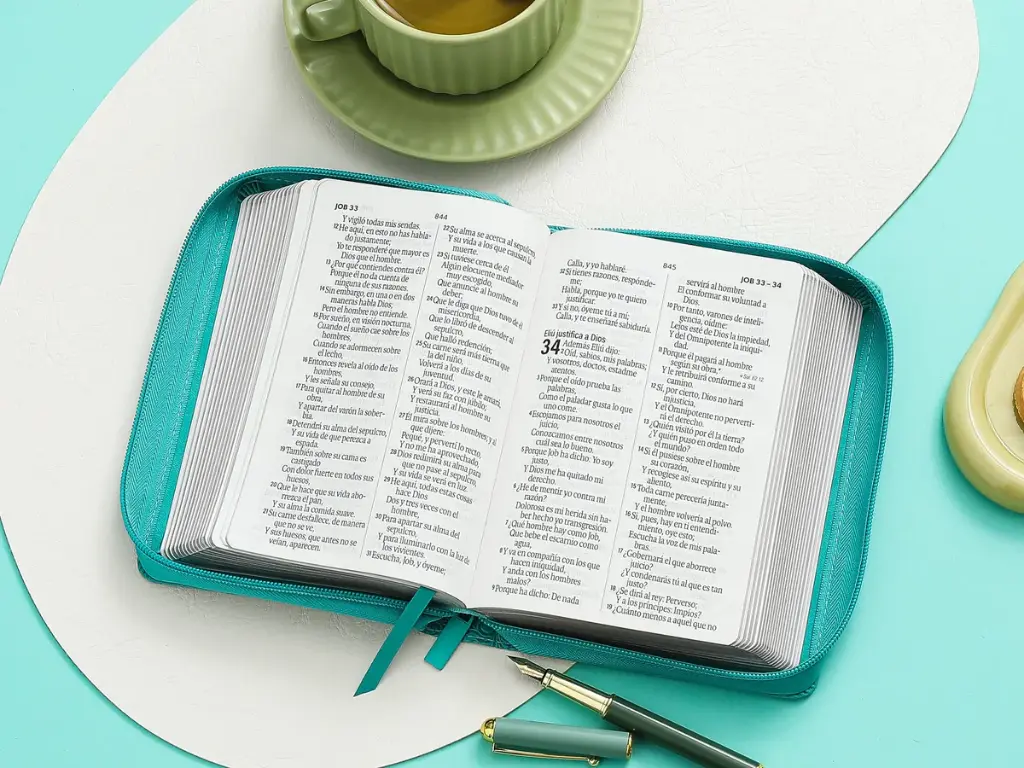 JOB 33
844
Y vigiló todas mis sendas.
12He aquí, en esto no has habla-
do justamente;
Yo te responderé que mayor es
Dios que el hombre.
13¿Por qué contiendes contra él?
Porque él no da cuenta de
ninguna de sus razones.
14Sin embargo, en una o en dos
maneras habla Dios;
Pero el hombre no entiende.
15Por sueño, en visión nocturna,
Cuando el sueño cae sobre los
hombres,
Cuando se adormecen sobre
el lecho,
16Entonces revela al oído de los
hombres,
Y les señala su consejo,
17Para quitar al hombre de su
obra,
Y apartar del varón la sober-
bia.
18Detendrá su alma del sepulcro,
Y su vida de que perezca a
espada.
19También sobre su cama es
castigado
Con dolor fuerte en todos sus
huesos,
20Que le hace que su vida abo-
rrezca el pan,
Y su alma la comida suave.
21Su carne desfallece, de manera
que no se ve,
Y sus huesos, que antes no se
veían, aparecen.
22Su alma se acerca al sepulcro,
Y su vida a los que causan la
muerte.
23Si tuviese cerca de él
Algún elocuente mediador
muy escogido,
Que anuncie al hombre su
deber;
24Que le diga que Dios tuvo de él
misericordia,
Que lo libró de descender al
sepulcro,
Que halló redención;
25Su carne será más tierna que
la del niño,
Volverá a los días de su
juventud.
26Orará a Dios, y éste le amará,
Y verá su faz con júbilo;
Y restaurará al hombre su
justicia.
27Él mira sobre los hombres; y al
que dijere:
Pequé, y pervertí lo recto,
Y no me ha aprovechado,
28Dios redimirá su alma para
que no pase al sepulcro,
Y su vida se verá en luz.
29He aquí, todas estas cosas
hace Dios
Dos y tres veces con el
hombre,
30Para apartar su alma del
sepulcro,
Y para iluminarlo con la luz de
los vivientes.
31Escucha, Job, y óyeme;
845
JOB 33 – 34
Calla, y yo hablaré.
32Si tienes razones, respónde-
me;
Habla, porque yo te quiero
justificar.
33Y si no, óyeme tú a mí;
Calla, y te enseñaré sabiduría.
Eliú justifica a Dios
34 Además Eliú dijo:
2Oíd, sabios, mis palabras;
Y vosotros, doctos, estadme
atentos.
3Porque el oído prueba las
palabras,
Como el paladar gusta lo que
uno come.
4Escojamos para nosotros el
juicio,
Conozcamos entre nosotros
cuál sea lo bueno.
5Porque Job ha dicho: Yo soy
justo,
Y Dios me ha quitado mi
derecho.
6¿He de mentir yo contra mi
razón?
Dolorosa es mi herida sin ha-
ber hecho yo transgresión.
7¿Qué hombre hay como Job,
Que bebe el escarnio como
agua,
8Y va en compañía con los que
hacen iniquidad,
Y anda con los hombres
malos?
9Porque ha dicho: De nada
servirá al hombre
El conformar su voluntad a
Dios.
10Por tanto, varones de inteli-
gencia, oídme:
Lejos esté de Dios la impiedad,
Y del Omnipotente la iniqui-
dad.
11Porque él pagará al hombre
según su obra,
Y le retribuirá conforme a su
camino.
12Sí, por cierto, Dios no hará
injusticia,
Y el Omnipotente no perverti-
rá el derecho.
13¿Quién visitó por él la tierra?
¿Y quién puso en orden todo
el mundo?
14Si él pusiese sobre el hombre
su corazón,
Y recogiese así su espíritu y su
aliento,
15Toda carne perecería junta-
mente,
Y el hombre volvería al polvo.
16Si, pues, hay en ti entendi-
miento, oye esto;
Escucha la voz de mis pala-
bras.
17¿Gobernará el que aborrece
juicio?
¿Y condenarás tú al que es tan
justo?
18¿Se dirá al rey: Perverso;
Y a los príncipes: Impíos?
19¿Cuánto menos a aquel que no